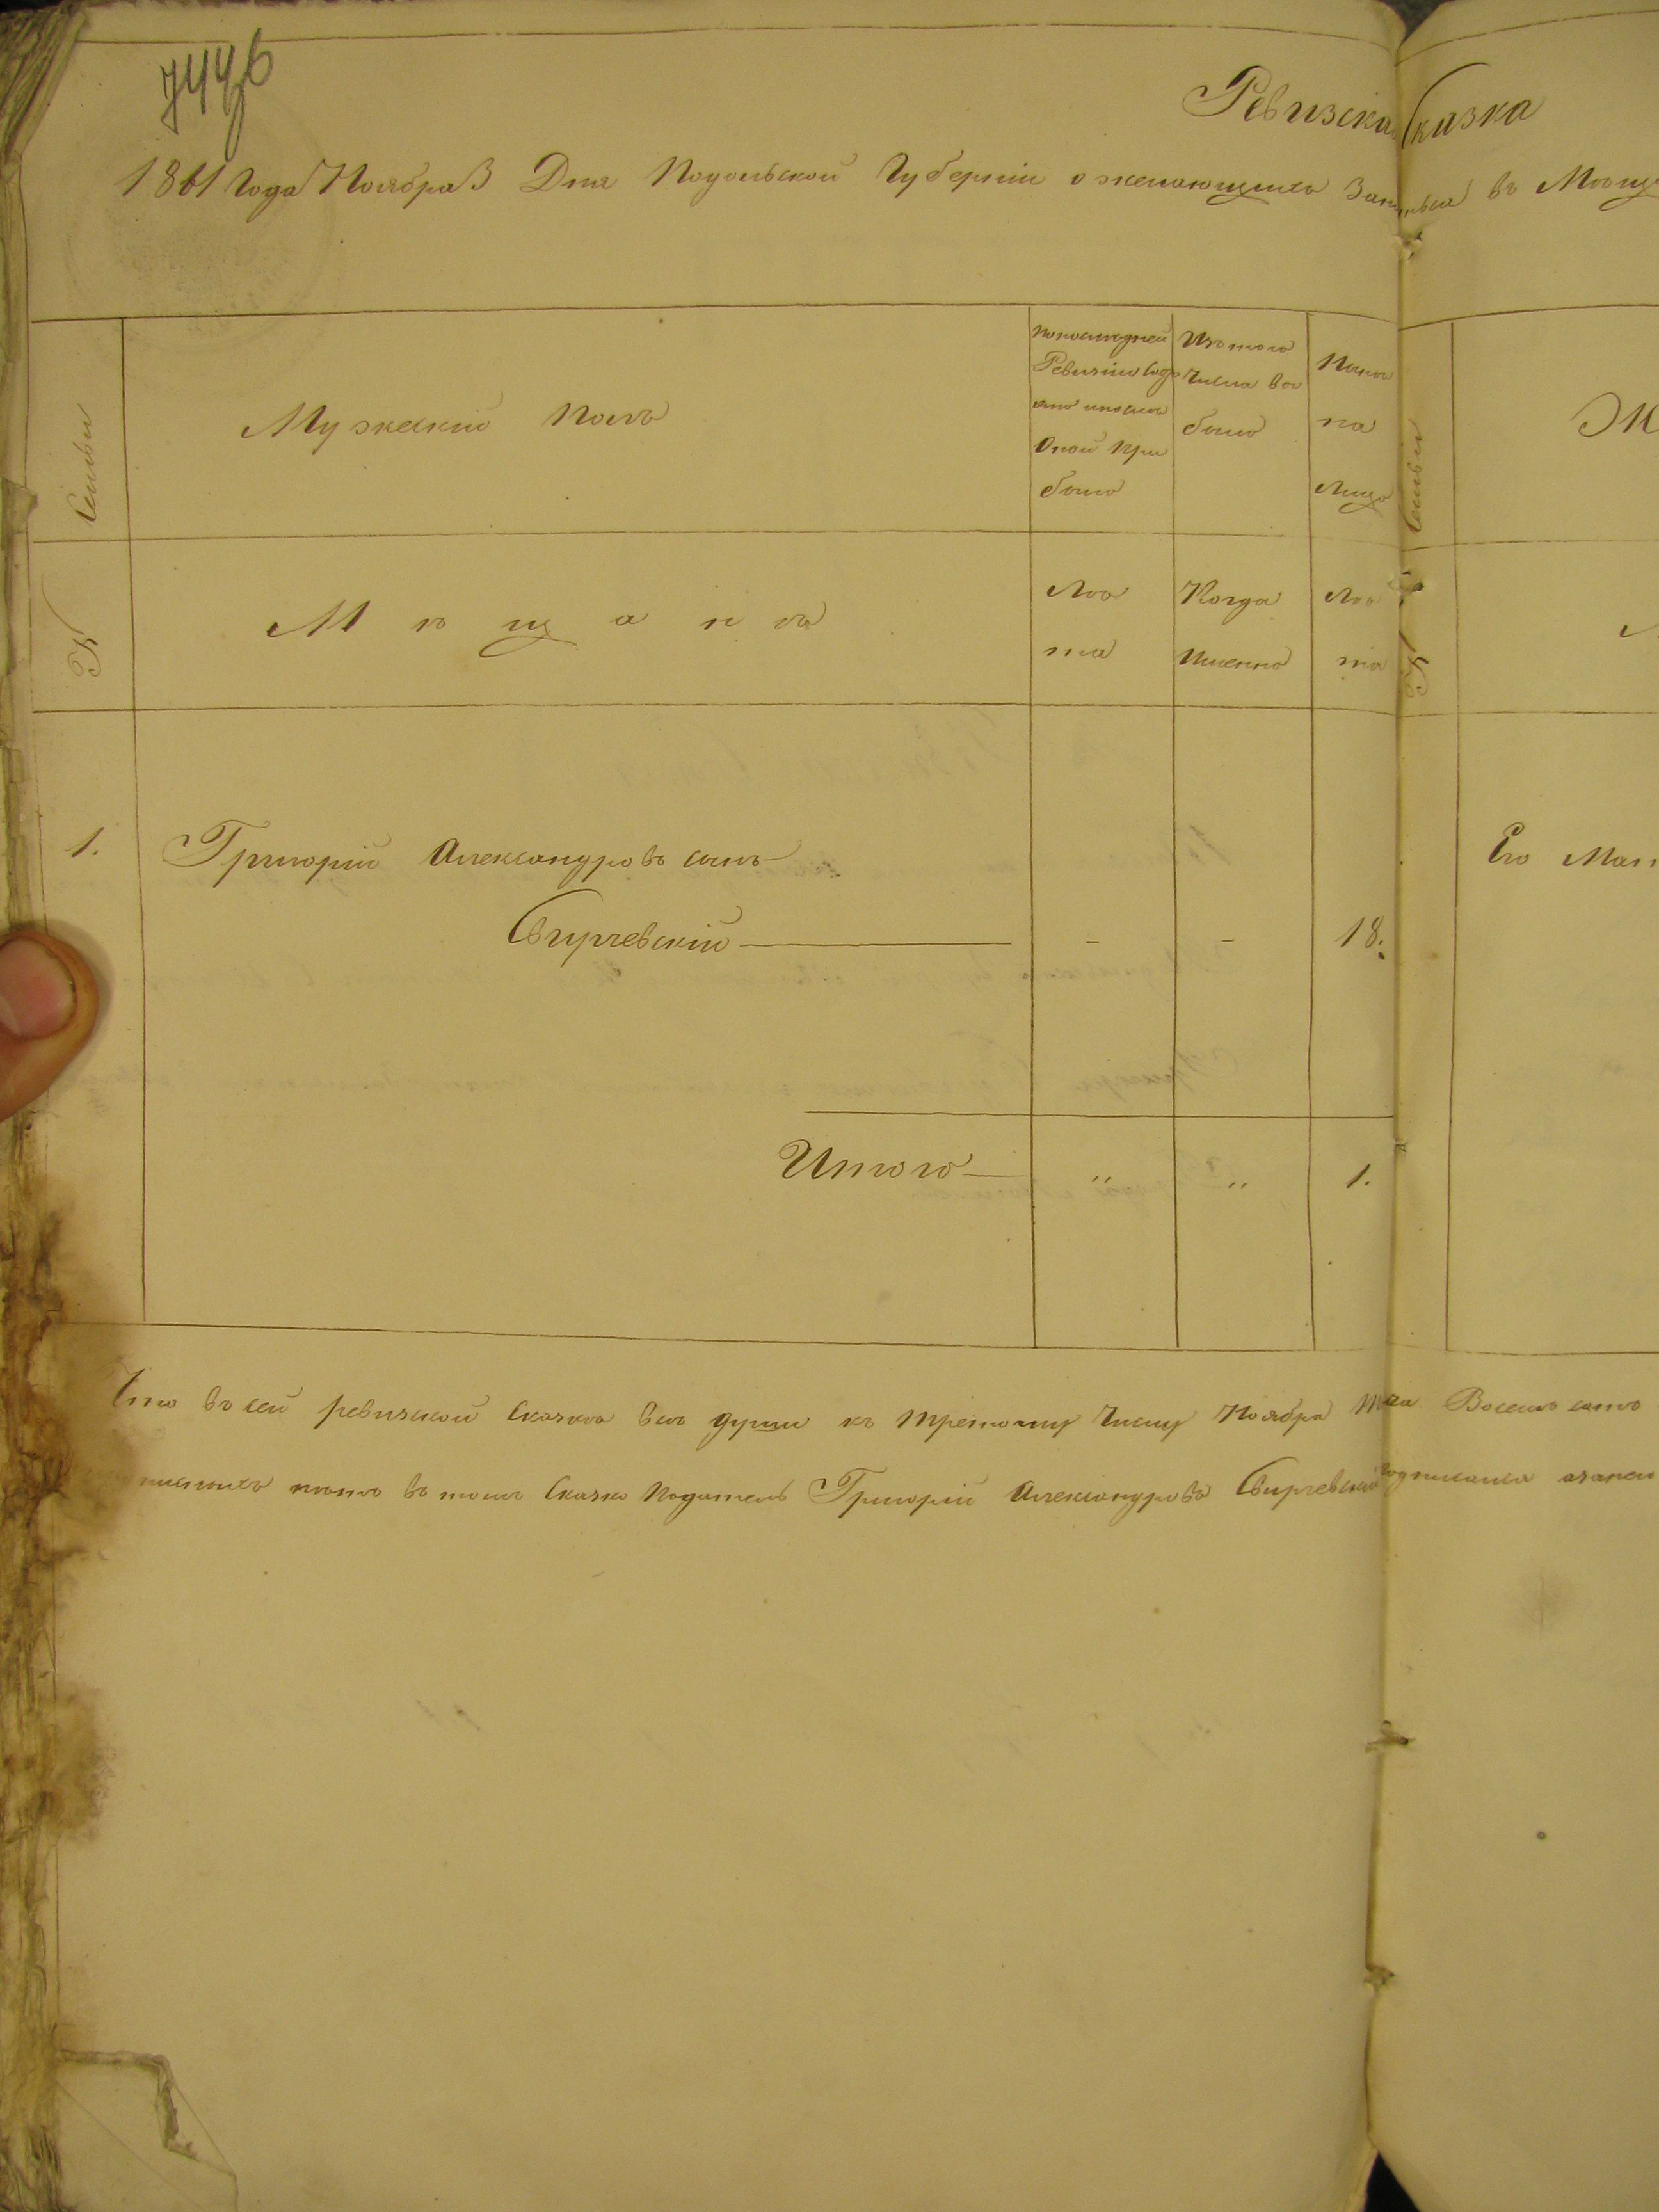 7446
Ревизска Сказка
1861 Года Ноября 3 Дня Подольской Губерніи о желающихъ въ Мѣщ
№ Семьи
Мужескій Полъ
По последней Ревизіи
оной при было
Изъ того Числа вы было
Ныне на Лицо
№ Семьи
Ж
Мѣщанъ
Лѣ та
Когда Именно
Лѣ та
1. Григорій Александровъ сынъ
Свирчевскій — - - 18.
Его Мат
Итого — " " 1.
Что въ сей ревизской Сказкѣ всѣ души къ Третьему Числу Ноября Восемь сотъ
нѣтъ въ томъ Сказко Податель Григорій Александровъ Свирчевскій